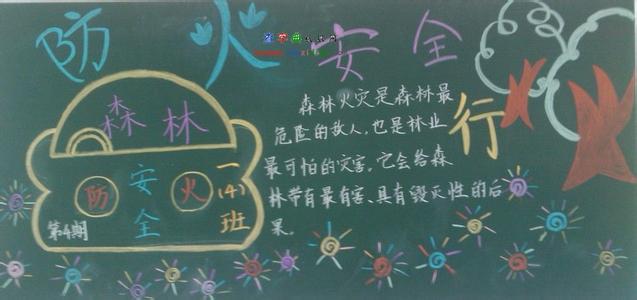 防火安全行
森林
防安全火
一(4)班
第4期
森林火灾是森林最
危险的敌人,也是林业
最可怕的灾害。它会给森
林带有最有害、具有毁灭性的后
果。